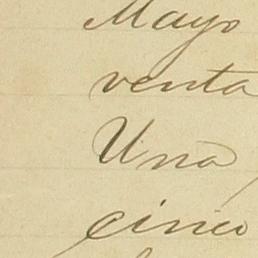 Mayo
venta
Una
cinco